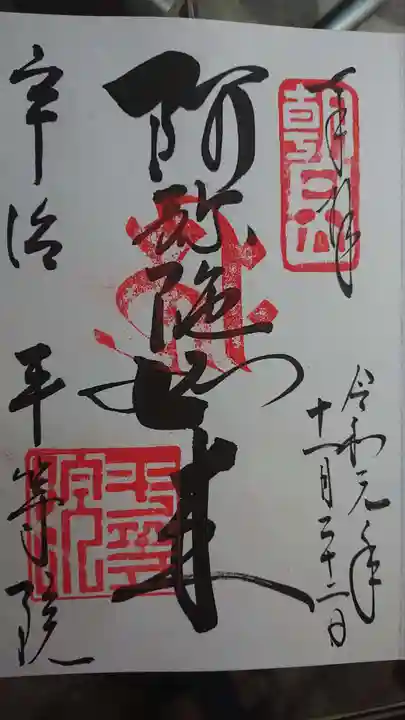 奉拝
朝日山
令和元年
十一月二十二日
阿弥陀如来
平等院
宇治 平等院